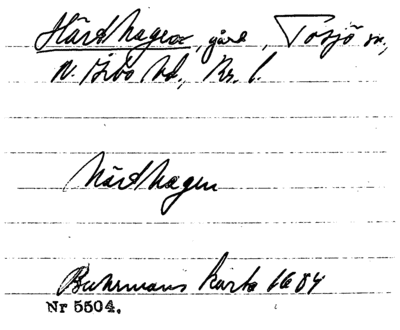 Hårdhagen, gård, Tosjö sn,
N. Åsbo hd, Kr. l.
Hårdhagen
Buhrmans karta 1684
Nr 5504.